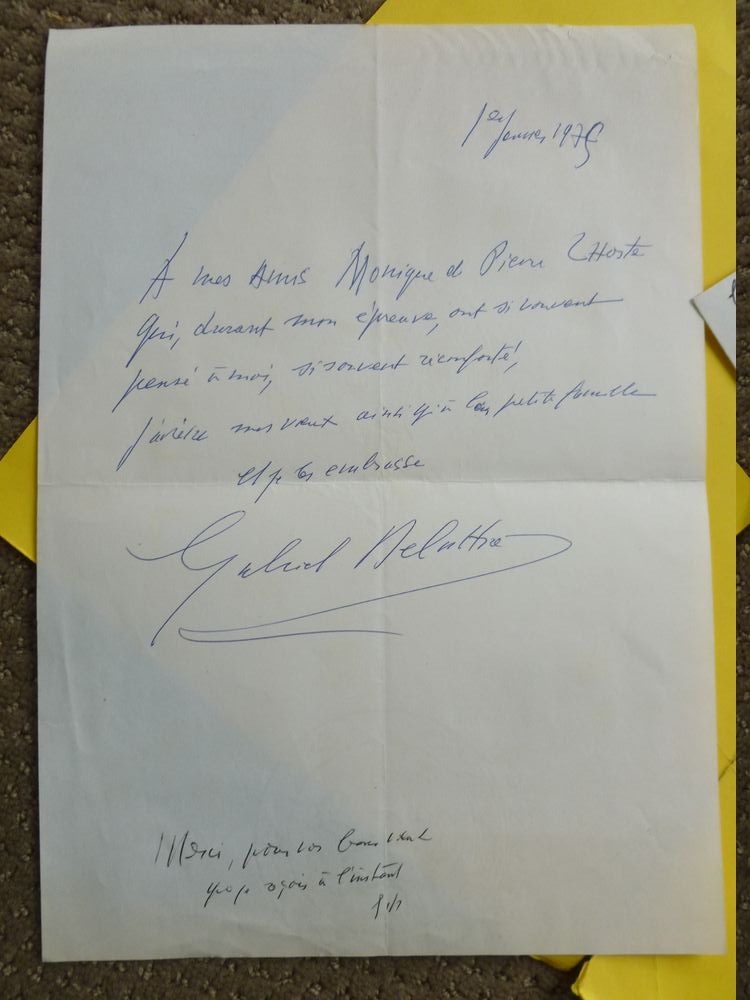 1er Janvier 1975
A mes Amis Monique et Pierre Lhoste
Qui, durant mon épreuve, ont si souvent
pensé à moi, si souvent réconforté,
j'adresse mes vœux ainsi qu'à leur petite famille
et je les embrasse
Gabriel Delattre
Merci, pour vos bons vœux
que je reçois à l'instant